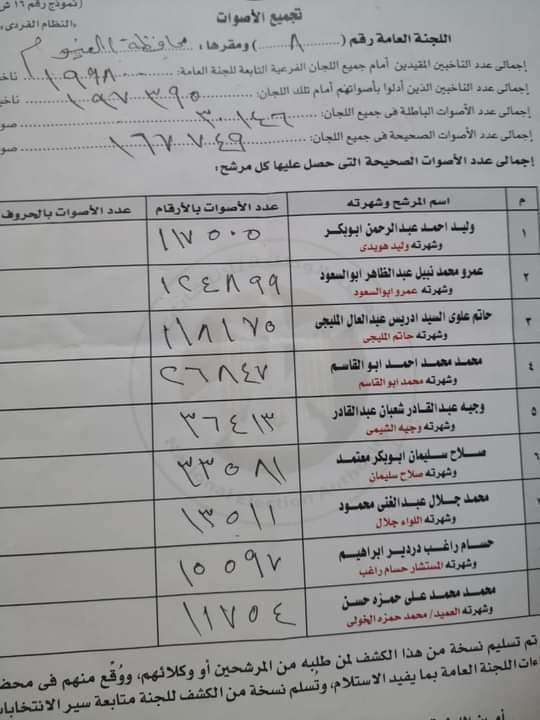 (نموذج رقم ١٦ ش
«النظام الفردى»
تجميع الأصوات
اللجنة العامة رقم (.....٨.....) ومقرها: محافظة الفيوم
إجمالى عدد الناخبين المقيدين أمام جميع اللجان الفرعية التابعة للجنة العامة:
إجمالى عدد الناخبين الذين أدلوا بأصواتهم أمام تلك اللجان:
إجمالى عدد الأصوات الباطلة فى جميع اللجان:
إجمالى عدد الأصوات الصحيحة فى جميع اللجان: ١٦٧٧٤٩
إجمالى عدد الأصوات الصحيحة التى حصل عليها كل مرشح:
م اسم المرشح وشهرته عدد الأصوات بالأرقام عدد الأصوات بالحروف
١ وليد احمد عبدالرحمن ابوبكر ١١٧٥٠٥
وشهرته وليد هويدى
٢ عمرو محمد نبيل عبدالظاهر ابوالسعود ١٢٤٨٩٩
وشهرته عمرو ابوالسعود
٣ حاتم علوى السيد ادريس عبدالعال المليجى
وشهرته حاتم المليجى
٤ محمد محمد احمد ابو القاسم ٢٦٨٤٧
وشهرته محمد ابو القاسم
٥ وجيه عبدالقادر شعبان عبدالقادر ٣٦٤١٣
وشهرته وجيه الشيمى
٦ صلاح سليمان ابوبكر معتمد
وشهرته صلاح سليمان
محمد جلال عبدالغنى محمود ١٣٥١١
وشهرته اللواء جلال
حسام راغب دردير ابراهيم ١٥٥٩٧
وشهرته المستشار حسام راغب
محمد محمد على حمزه حسن ١١٧٥٤
وشهرته العميد/ محمد حمزه الخولى
تم تسليم نسخة من هذا الكشف لمن طلبه من المرشحين أو وكلائهم، ووُقِّع منهم فى محض
اءات اللجنة العامة بما يفيد الاستلام، وتُسلم نسخة من الكشف للجنة متابعة سير الانتخابات